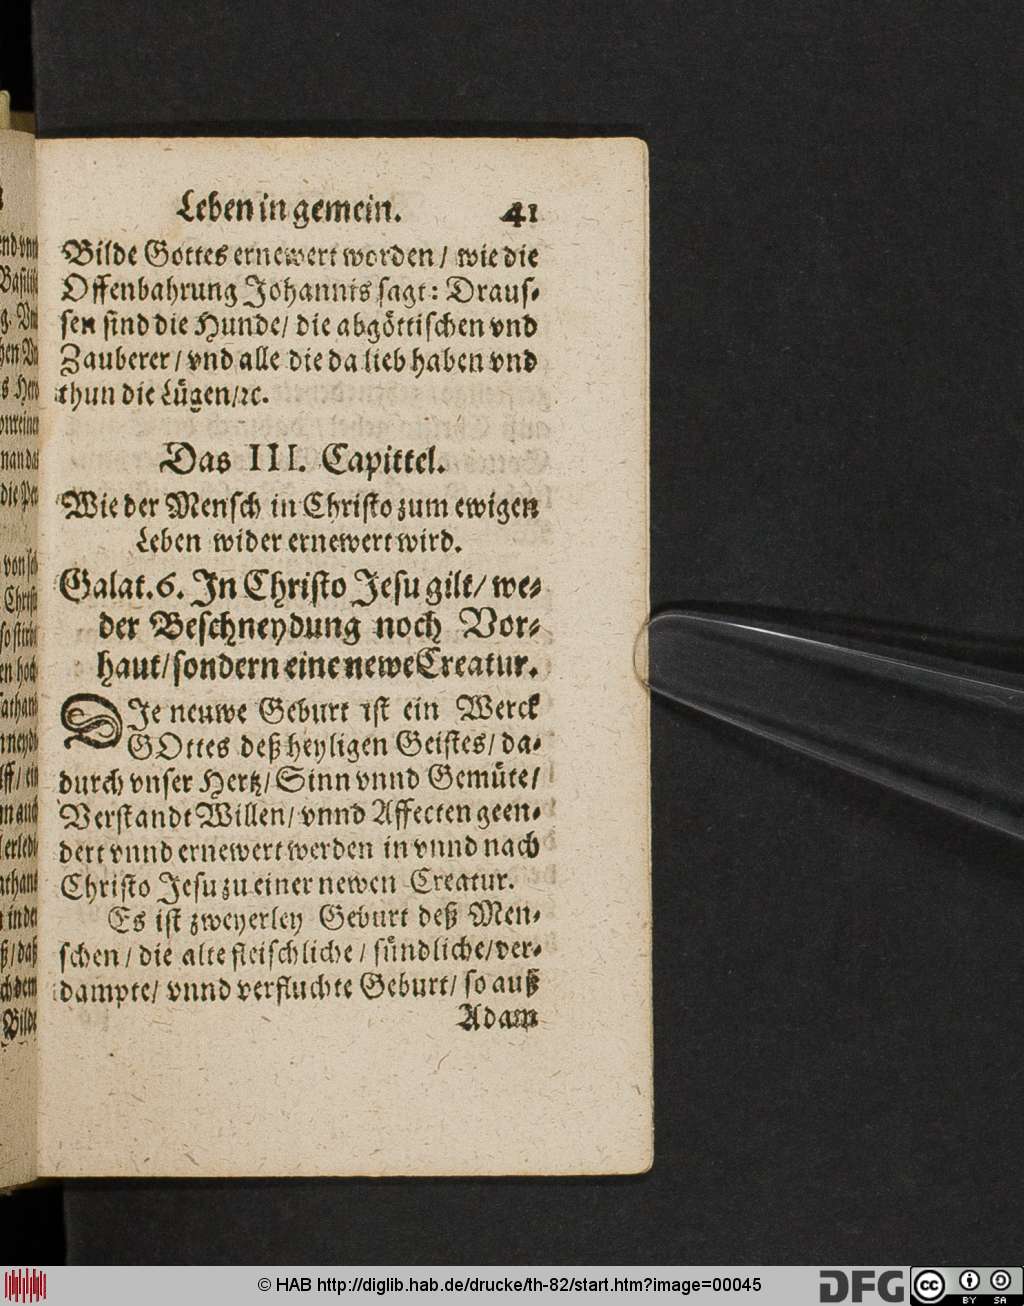 Leben in gemein. 41
Bilde Gottes ernewert worden / wie die
Offenbahrung Johannis sagt: Draus-
sen sind die Hunde / die abgöttischen vnd
Zauberer / vnd alle die da lieb haben vnd
thun die Lügen / ꝛc.
Das III. Capittel.
Wie der Mensch in Christo zum ewigen
Leben wider ernewert wird.
Galat. 6. In Christo Jesu gilt / we-
der Beschneydung noch Vor-
haut / sondern eine newe Creatur.
DIe neuwe Geburt ist ein Werck
GOttes deß heyligen Geistes / da-
durch vnser Hertz / Sinn vnnd Gemüte /
Verstandt Willen / vnnd Affecten geen-
dert vnnd ernewert werden in vnnd nach
Christo Jesu zu einer newen Creatur.
Es ist zweyerley Geburt deß Men-
schen / die alte fleischliche / sündliche / ver-
dampte / vnnd verfluchte Geburt / so auß
Adam
© HAB http://diglib.hab.de/drucke/th-82/start.htm?image=00045
DFG
cc BY SA